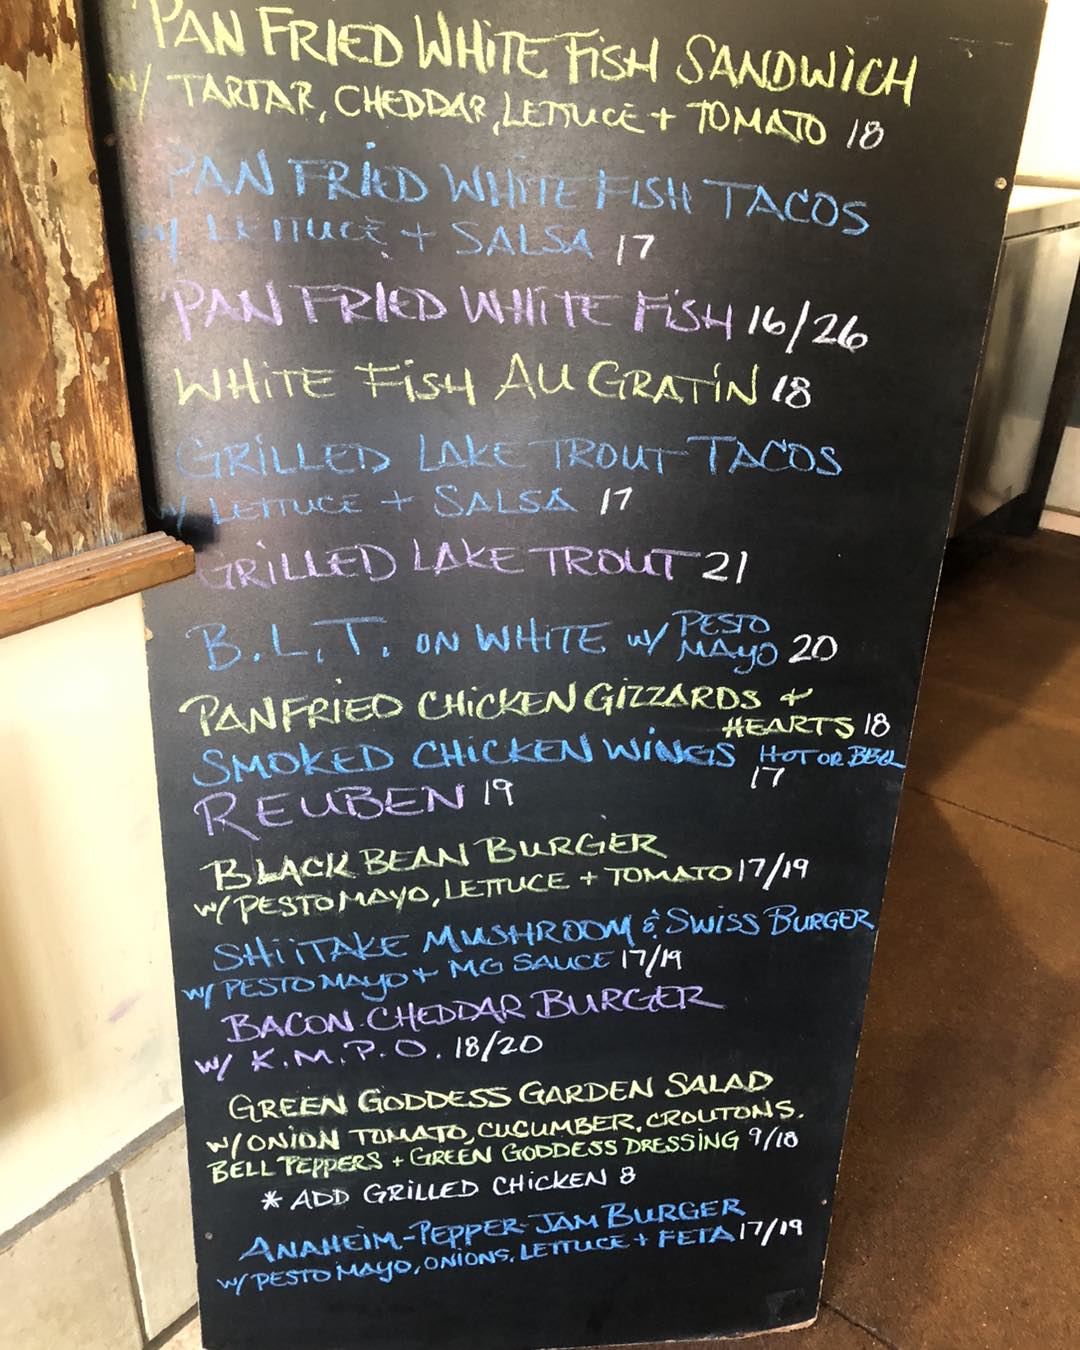 PAN FRIED WHITE FISH SANDWICH
W/ TARTAR, CHEDDAR, LETTUCE + TOMATO 18
PAN FRIED WHITE FISH TACOS
W/ LETTUCE + SALSA 17
PAN FRIED WHITE FISH 16/26
WHITE FISH AU GRATIN 18
GRILLED LAKE TROUT TACOS
W/ LETTUCE + SALSA 17
GRILLED LAKE TROUT 21
B.L.T. ON WHITE W/ PESTO MAYO 20
PAN FRIED CHICKEN GIZZARDS +
HEARTS 18
SMOKED CHICKEN WINGS HOT OR BBQ
17
REUBEN 19
BLACK BEAN BURGER
W/ PESTO MAYO, LETTUCE + TOMATO 17/19
SHIITAKE MUSHROOM & SWISS BURGER
W/ PESTO MAYO + MG SAUCE 17/19
BACON-CHEDDAR BURGER
W/ K.M.P.O. 18/20
GREEN GODDESS GARDEN SALAD
W/ ONION TOMATO, CUCUMBER, CROUTONS,
BELL PEPPERS + GREEN GODDESS DRESSING 9/18
* ADD GRILLED CHICKEN 8
ANAHEIM-PEPPER-JAM BURGER
W/ PESTO MAYO, ONIONS, LETTUCE + FETA 17/19